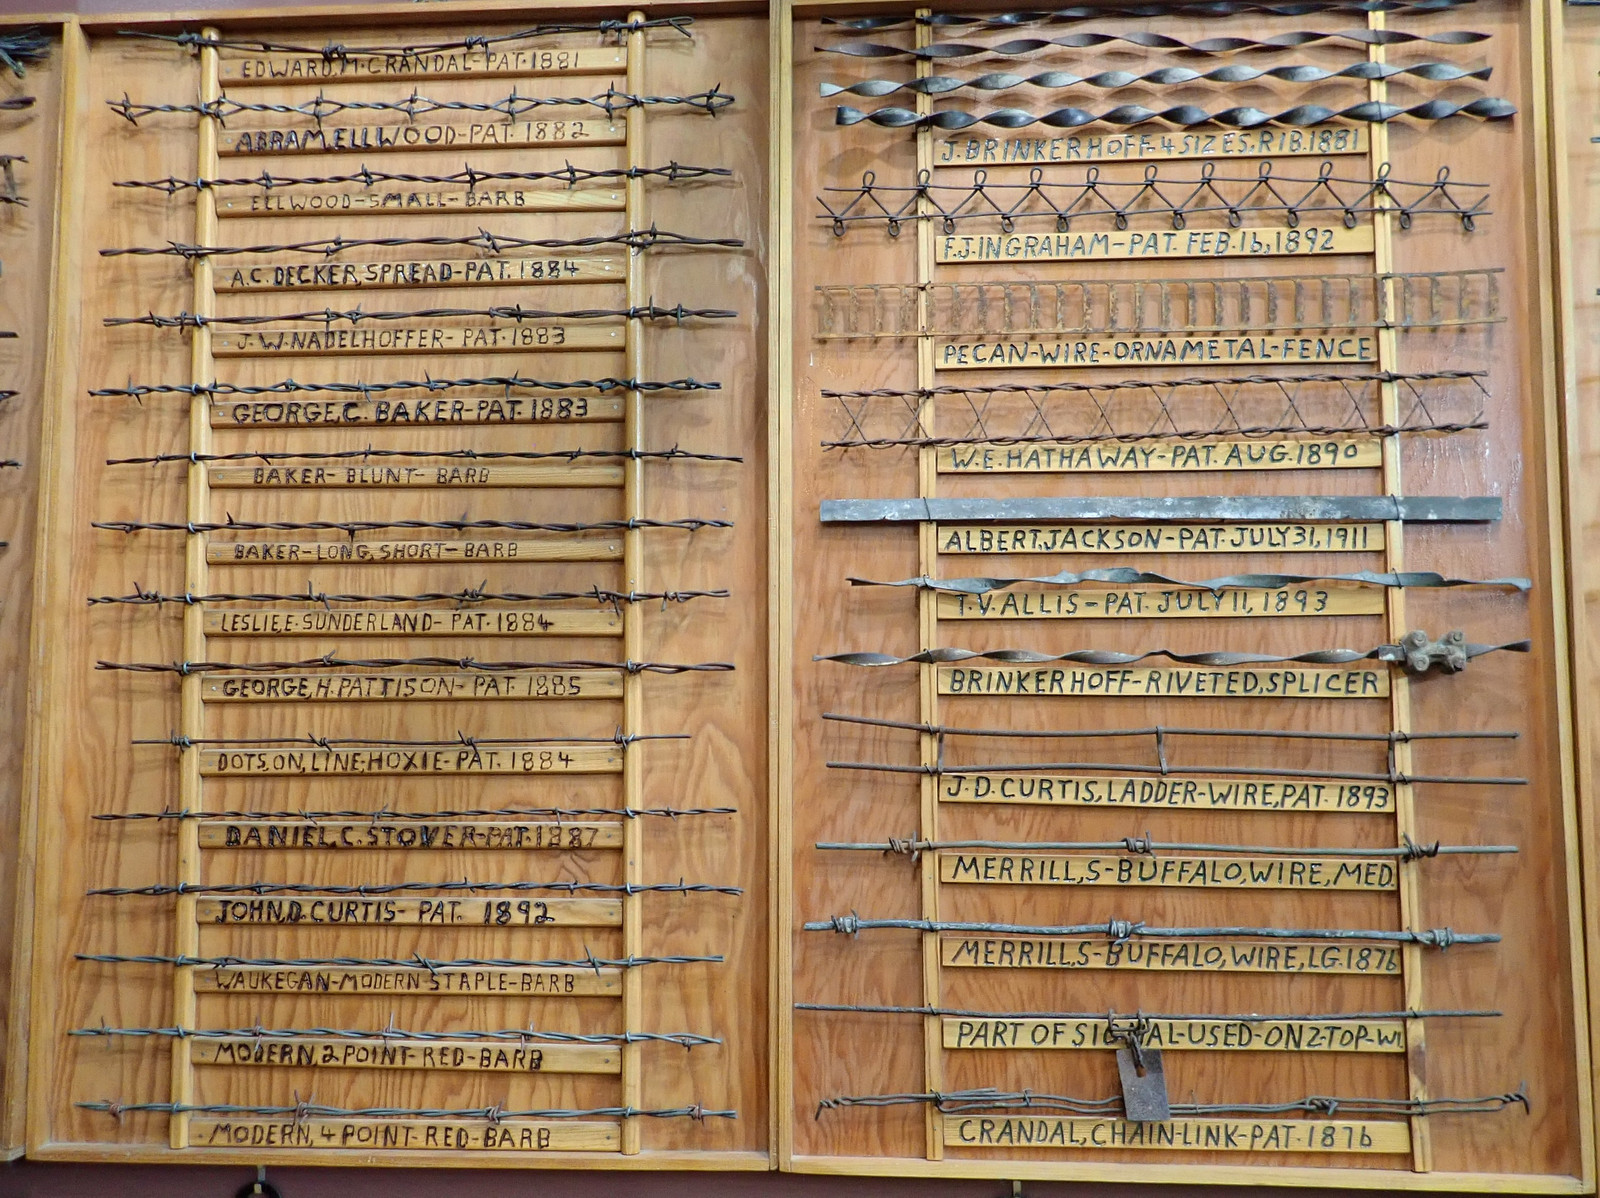 EDWARD.M.CRANDAL-PAT.1881
ABRAM,ELLWOOD-PAT. 1882
ELLWOOD-SMALL-BARB
A.C. DECKER,SPREAD-PAT. 1884
J.W.NADELHOFFER-PAT.1883
GEORGE,C. BAKER-PAT.1883
BAKER-BLUNT-BARB
BAKER-LONG,SHORT-BARB
LESLIE,E.SUNDERLAND-PAT.1884
GEORGE,H.PATTISON-PAT.1885
DOTS,ON,LINE,HOXIE-PAT.1884
DANIEL,C.STOVER-PAT.1887
JOHN,D.CURTIS-PAT. 1892
WAUKEGAN-MODERN STAPLE-BARB
MODERN,2POINT-RED-BARB
MODERN,4POINT-RED-BARB
J.BRINKERHOFF-4SIZES.RIB.1881
F.J.INGRAHAM-PAT. FEB.16,1892
PECAN-WIRE-ORNAMETAL-FENCE
W.E.HATHAWAY-PAT.AUG.1890
ALBERT.JACKSON-PAT.JULY31,1911
T.V.ALLIS-PAT. JULY11,1893
BRINKERHOFF-RIVETED,SPLICER
J.D.CURTIS,LADDER-WIRE,PAT.1893
MERRILL,S-BUFFALO,WIRE,MED.
MERRILL,S-BUFFALO,WIRE,LG.1876
PART OF SIGNAL-USED-ON2-TOP-WI
CRANDAL,CHAIN-LINK-PAT.1876